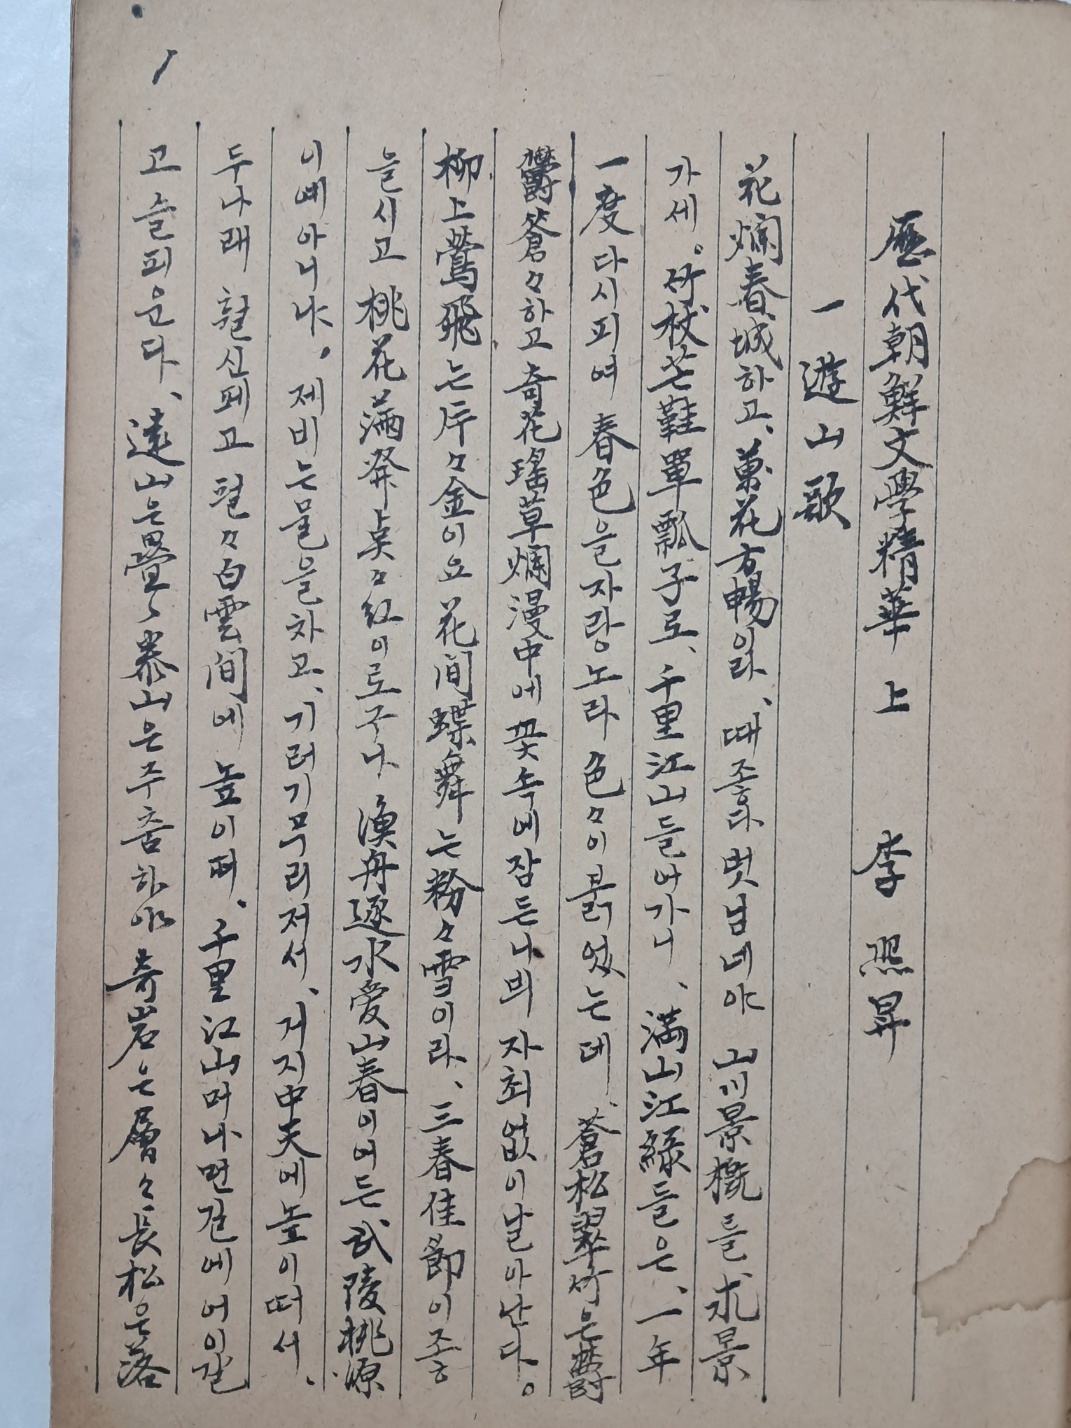 歷代朝鮮文學精華 上 李熙昇
一 遊山歌
花爛春城하고、萬花方暢이라、때좋다 벗님네야 山川景槪를 求景
가세。竹杖芒鞋單瓢子로、千里江山들어가니、滿山江綠들은、一年
一度다시피여 春色을자랑노라 色々이붉었는데 蒼松翠竹은欝
欝蒼々하고 奇花瑤草爛漫中에 꽃속에잠든나븨 자최없이날아난다。
柳上鶯飛는片々金이요 花間蝶舞는粉々雪이라、三春佳節이좋
을시고 桃花滿發点々紅이로구나 漁舟逐水愛山春이어든武陵桃源
이예아니냐。제비는물을차고、기러기무리저서、거지中天에높이떠서、
두나래 훨신페고 펄々白雲間에 높이떠、千里江山머나먼길에어이갈
고 슬피운다、遠山은疊々 泰山은주춤하야 奇岩은層々 長松은落